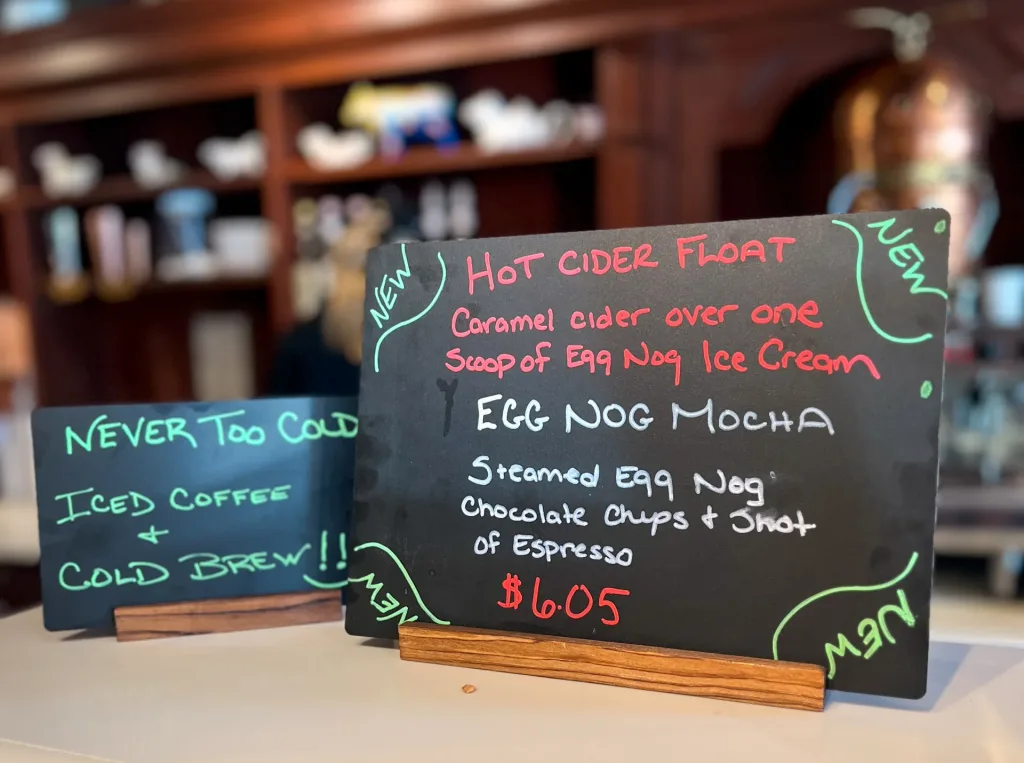 NEVER TOO COLD
ICED COFFEE
+
COLD BREW!!
NEW
NEW
HOT CIDER FLOAT
Caramel cider over one
Scoop of Egg Nog Ice Cream
EGG NOG MOCHA
Steamed Egg Nog
Chocolate Chips + Shot
of Espresso
$6.05
NEW
NEW